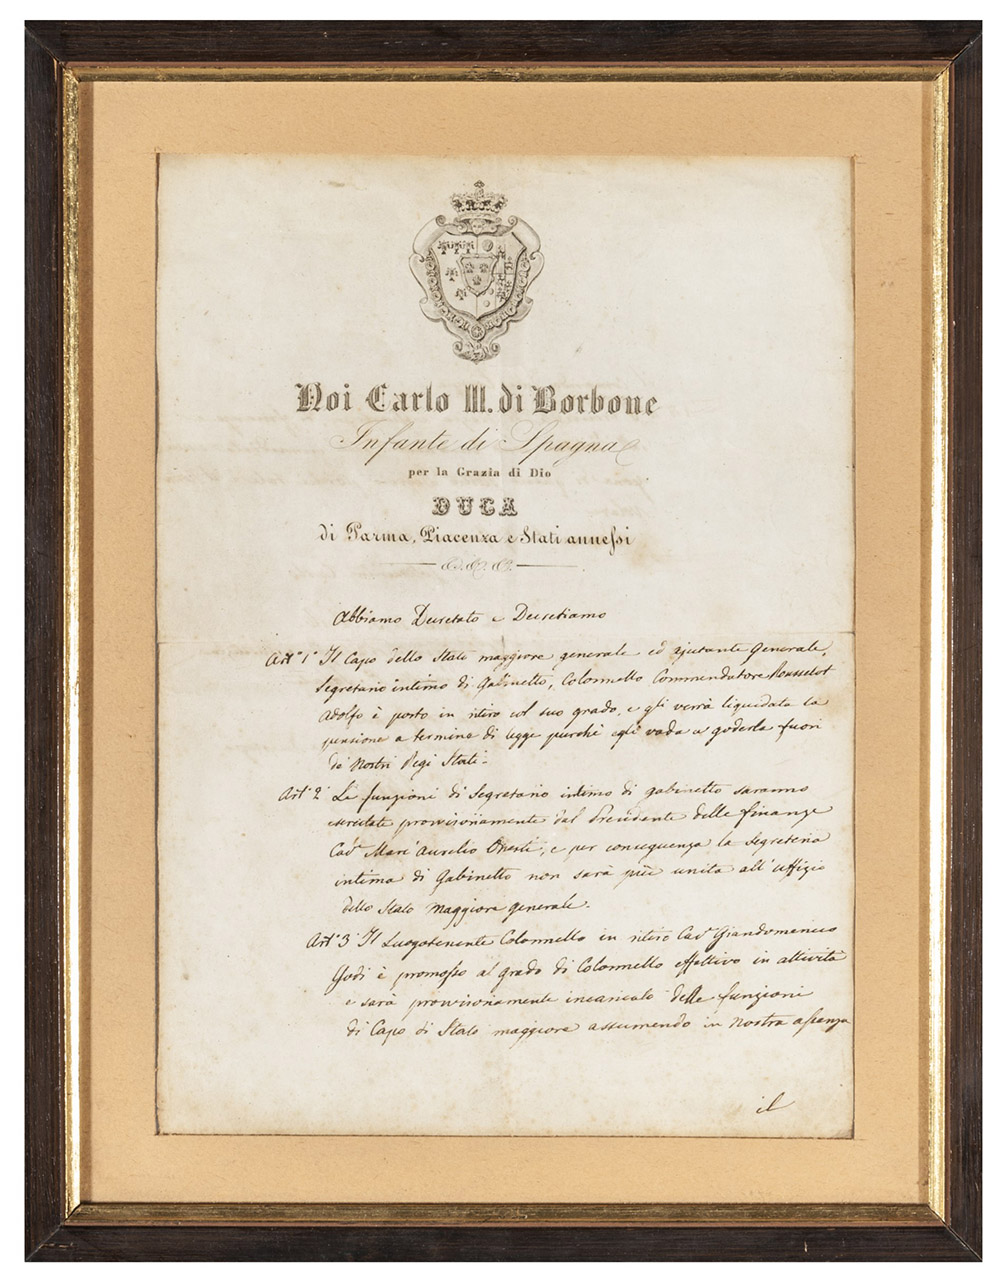 Noi Carlo III. di Borbone
Infante di Spagna
per la Grazia di Dio
DUCA
di Parma, Piacenza e Stati annessi
Abbiamo Decretato e Decretiamo
Art° 1° Il Capo dello Stato maggiore generale ed ajutante Generale,
Segretario intimo di Gabinetto, Colonnello Commendatore Rousselot
Adolfo è posto in ritiro col suo grado, e gli verrà liquidata la
pensione a termine di legge purchè egli vada a goderla fuori
de' Nostri Regi Stati.
Art° 2° Le funzioni di Segretario intimo di gabinetto saranno
esercitate provvisoriamente dal Presidente delle finanze
Cav.e Marc'Aurelio Onesti, e per conseguenza la Segreteria
intima di Gabinetto non sarà più unita all'uffizio
dello Stato Maggiore generale.
Art° 3° Il Luogotenente Colonnello in ritiro Cav.e Giandomenico
Godi è promosso al grado di Colonnello effettivo in attività
e sarà provvisoriamente incaricato delle funzioni
di Capo di Stato maggiore assumendo in Nostra assenza
il